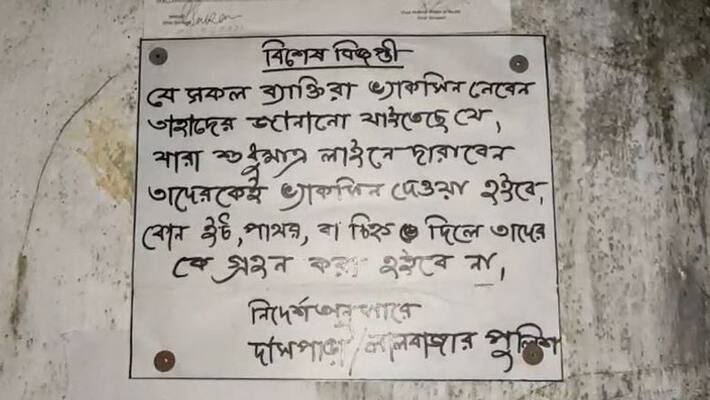 বিশেষ বিজ্ঞপ্তী
যে সকল ব্যাক্তিরা ভ্যাকসিন নেবেন
তাহাদের জানানো যাইতেছে যে,
যারা শুধুমাত্র লাইনে দারাবেন
তাদেরকেই ভ্যাকসিন দেওয়া হইবে,
কোন ইট, পাথর, বা চিহ্ন দিলে তাদের
কে গ্রহন করা হইবে না,
নির্দেশঅনুসারে
দাসপাড়া/লালবাজার পুলিশ